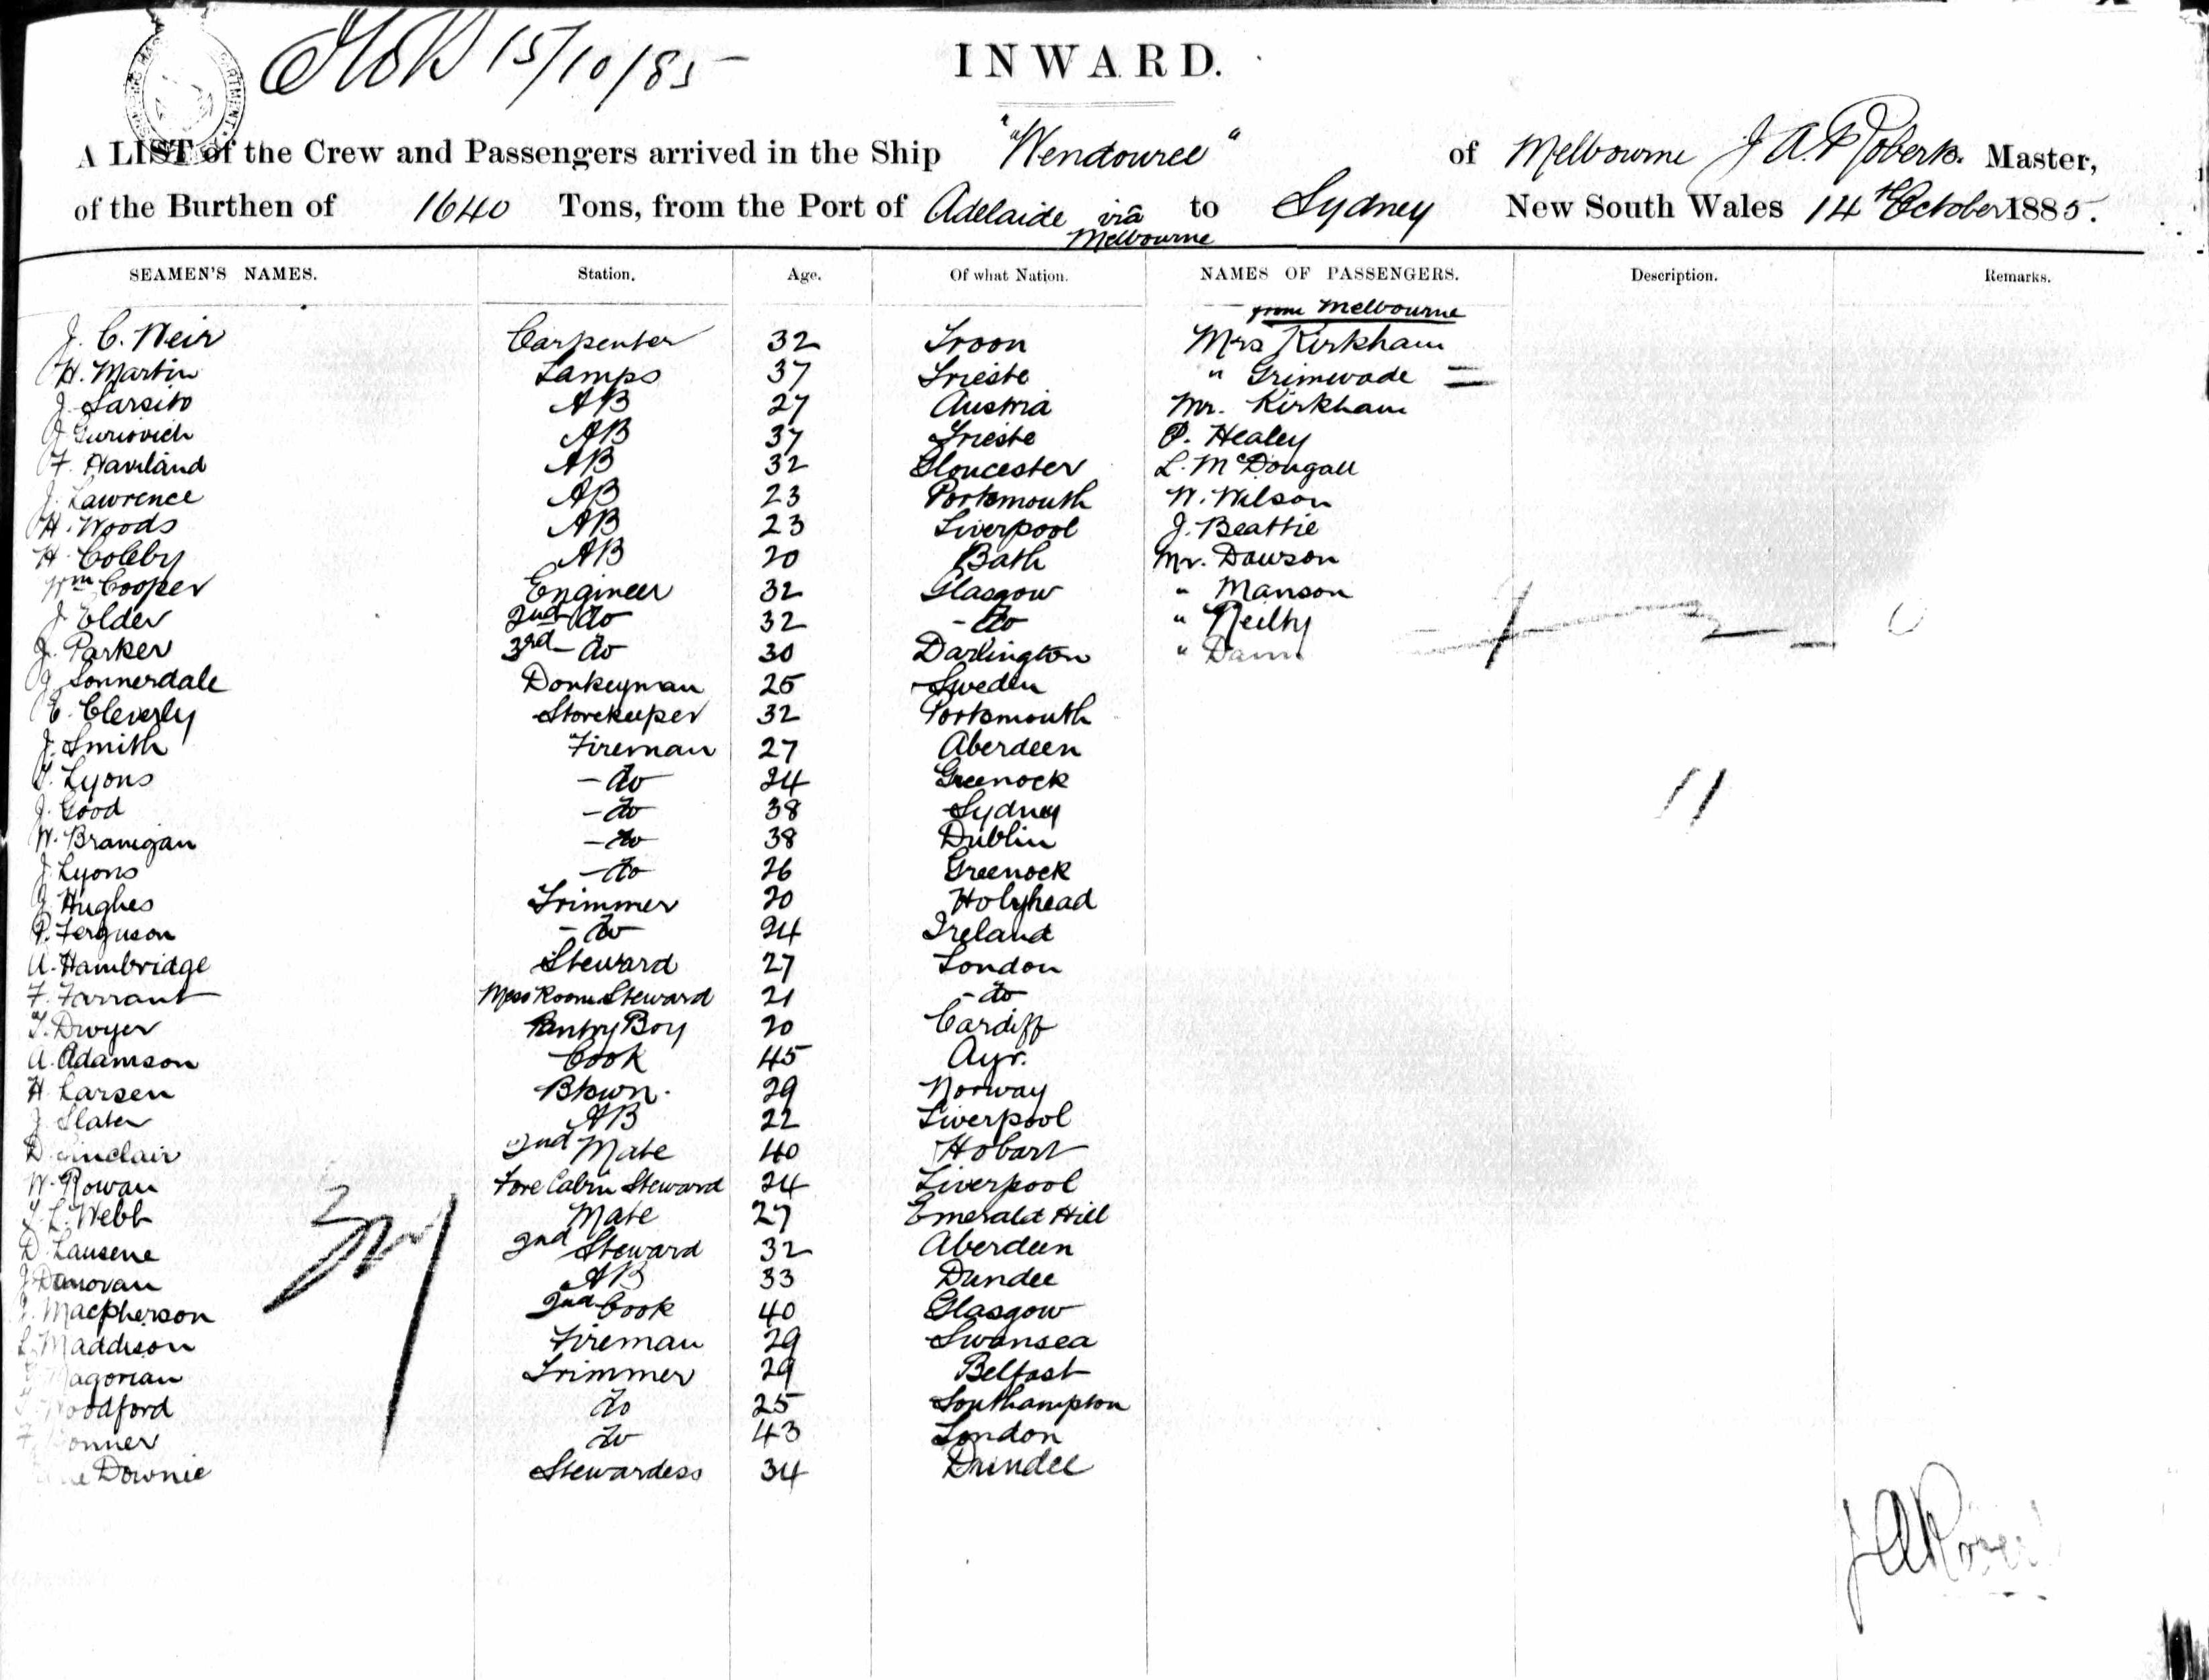 15/10/85
INWARD.
A LIST of the Crew and Passengers arrived in the Ship "Wendouree" of Melbourne J A. Roberts. Master,
of the Burthen of 1640 Tons, from the Port of Adelaide via Melbourne to Sydney New South Wales 14th October 1885.
SEAMEN'S NAMES. Station. Age. Of what Nation. NAMES OF PASSENGERS. Description. Remarks.
from Melbourne
J. C. Weir Carpenter 32 Troon Mrs Kirkham
H. Martin Lamps 37 Trieste " Grimwade
J. AB 27 Austria Mr. Kirkham
J AB 37 Trieste P. Healey
F. Haviland AB 32 Gloucester L. McDougall
J. Lawrence AB 23 Portsmouth W. Wilson
H. Woods AB 23 Liverpool J. Beattie
H. Coleby AB 20 Bath Mr. Dawson
Wm Cooper Engineer 32 Glasgow " Manson
J. Elder 2nd do 32 - do " Neilly
J. Parker 3rd - do 30 Darlington "
J Sonnerdale Donkeyman 25 Sweden
E. Cleverly Storekeeper 32 Portsmouth
J. Smith Fireman 27 Aberdeen
T. Lyons - do 24 Greenock
J. Good - do 38 Sydney
W. Branigan - do 38 Dublin
J. Lyons - do 26 Greenock
J. Hughes Trimmer 20 Holyhead
P. Ferguson - do 24 Ireland
A. Hambridge Steward 27 London
F. Farrant Mess Room Steward 21 - do
T. Dwyer Pantry Boy 20 Cardiff
A. Adamson Cook 45 Ayr.
H. Larsen Btswn. 29 Norway
J Slater AB 22 Liverpool
D. Sinclair 2nd Mate 40 Hobart
W. Rowan Fore Cabin Steward 24 Liverpool
L. Webb Mate 27 Emerald Hill
D. Lausene 2nd Steward 32 Aberdeen
J Donovan AB 33 Dundee
J. Macpherson 2nd Cook 40 Glasgow
L. Maddison Fireman 29 Swansea
Magorian Trimmer 29 Belfast
Woodford do 25 Southampton
do 43 London
Downie Stewardess 34 Dundee
11
37